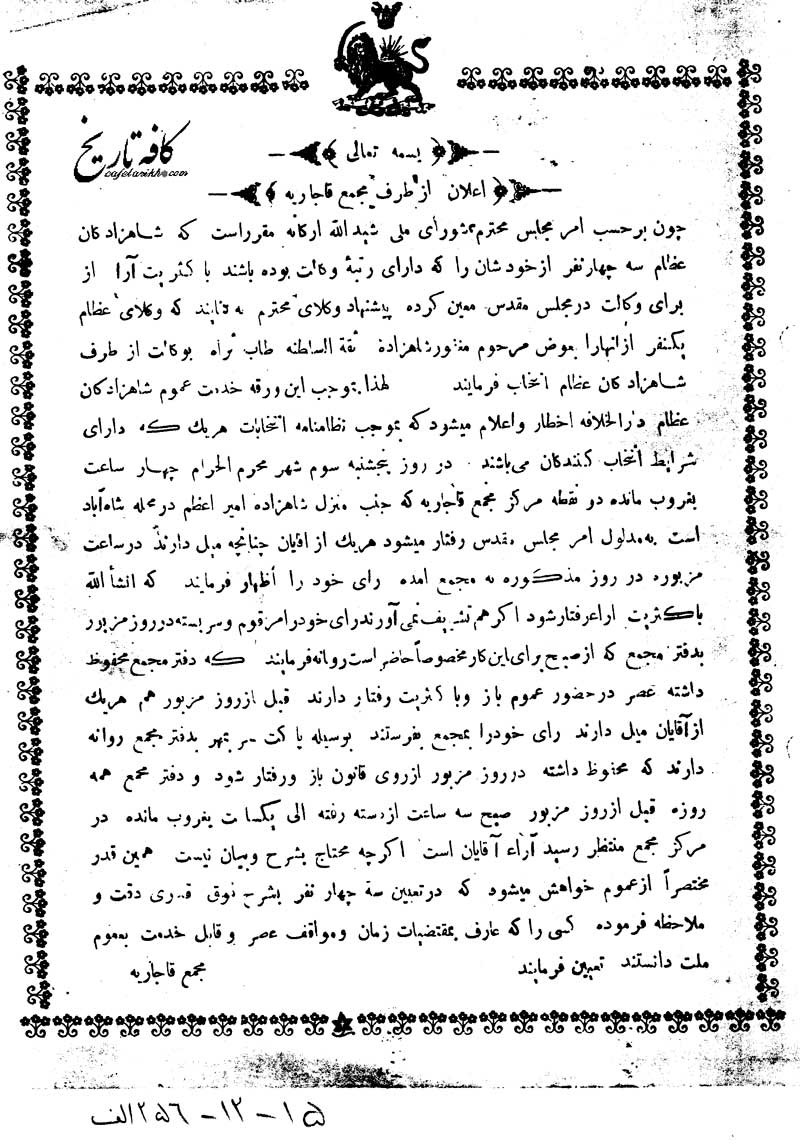 کافه تاریخ
cafetarikh.com
بسمه تعالی
اعلان از طرف مجمع قاجاریه
چون برحسب امر مجلس محترم شورای ملی شیدالله ارکانه مقرراست که شاهزادکان
عظام سه چهارنفر ازخودشان را که دارای رتبهٔ وکالت بوده باشند باکثریت آرا از
برای وکالت درمجلس مقدس معین کرده پیشنهاد وکلای محترم نمایند که وکلای عظام
یکنفر ازانهارا بعوض مرحوم مغفورشاهزاده ثقة السلطنه طاب ثراه بوکالت از طرف
شاهزادکان عظام انتخاب فرمایند لهذا بموجب این ورقه خدمت عموم شاهزادکان
عظام دارالخلافه اخطار واعلام میشود که بموجب نظامنامه انتخابات هریك که دارای
شرایط انتخاب کنندکان می‌باشند در روز پنجشنبه سوم شهر محرم الحرام چهار ساعت
بغروب مانده دو نقطه مرکز مجمع قاجاریه که جنب منزل شاهزاده امیر اعظم درمحله شاه‌آباد
است بمدلول امر مجلس مقدس رفتار میشود هریك از اقایان چنانچه میل دارند درساعت
مزبوره در روز مذکوره به مجمع امده رای خود را اظهار فرمایند که انشأالله
باکثریت اراءرفتارشود اکرهم تشریف نمی‌آورندرای خودرامرقوم وسربسته درروزمزبور
بدفتر مجمع که ازصبح برای این کارمخصوصاًحاضراست‌روانه‌فرمایند که دفتر مجمع محفوظ
داشته عصر درحضور عموم باز وباکثریت رفتار دارند قبل ازروز مزبور هم هریك
ازآقایان میل دارند رای خودرا بمجمع بفرستند بوسیله پاکت سر بمهر بدفتر مجمع روانه
دارند که محفوظ داشته درروز مزبور ازروی قانون باز ورفتار شود و دفتر مجمع همه
روزه قبل ازروز مزبور صبح سه ساعت ازدسته رفته الی یکساعت بغروب مانده در
مرکز مجمع منتظر رسید آراء آقایان است اکرچه محتاج بشرح وبیان نیست همین قدر
مختصراً ازعموم خواهش میشود که درتعیین سه چهار نفر بشرح فوق قدری دقت و
ملاحظه فرموده کسی را که عارف بمقتضیات زمان ومواقف عصر وقابل خدمت بعموم
ملت دانستند تعیین فرمایند مجمع قاجاریه
۱۵-۱۲-۲۵۶الف